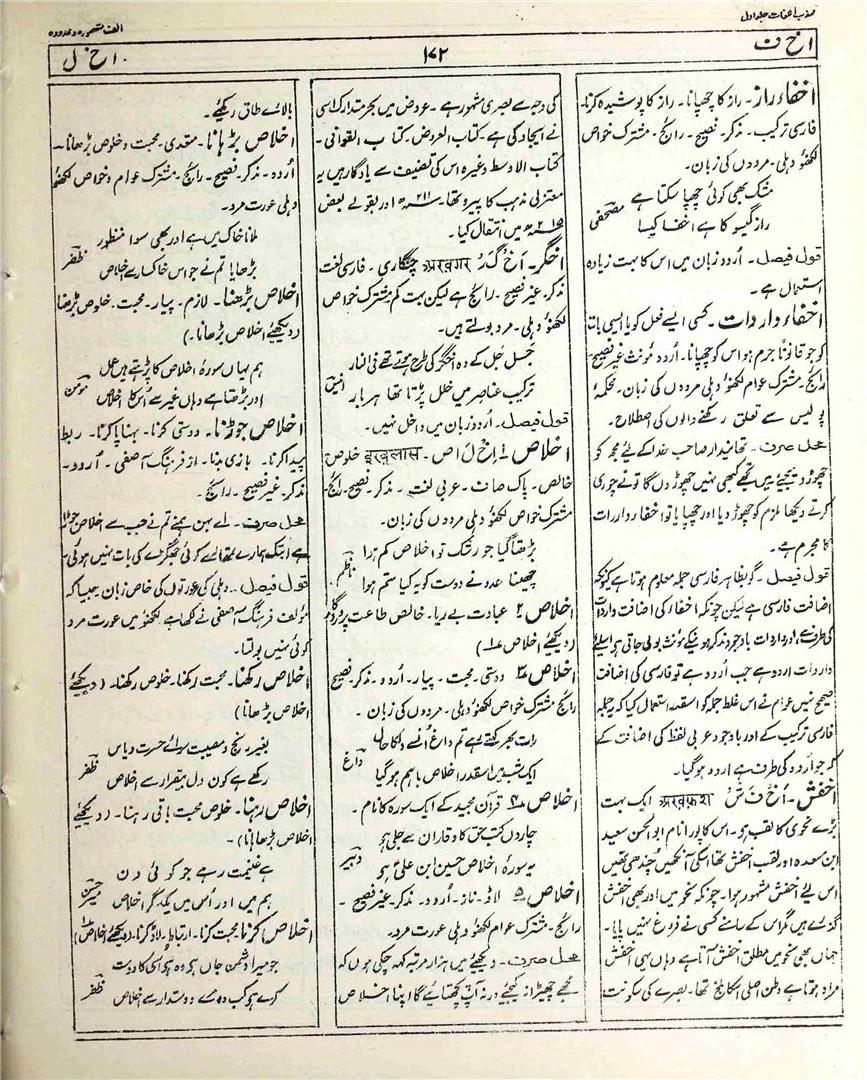 مہذب اللغات جلد اول
الف مقصورہ و ممدودہ
ا خ ف
۱۷۲
ا خ ل
اخفاء راز۔ راز کا چھپانا۔ راز کا پوشیدہ کرنا۔
فارسی ترکیب۔ مذکر۔ فصیح۔ رائج۔ مشترک خواص
لکھنؤ دہلی۔ مردوں کی زبان۔
مشک بھی کوئی چھپا سکتا ہے
راز گیسو کا ہے اخفا کیسا
مصحفی
قول فیصل۔ اُردو زبان میں اس کا بہت زیادہ
استعمال ہے۔
اخفاء واردات۔ کسی ایسے فعل کو یا ایسی بات
کو جو قانوناً جرم ہو اس کو چھپانا۔ اُردو مؤنث غیر فصیح
رائج۔ مشترک عوام لکھنؤ دہلی مردوں کی زبان۔ محکمۂ
پولیس سے تعلق رکھنے والوں کی اصطلاح۔
محل صرف۔ تھانیدار صاحب خدا کے لئے مجھ کو
چھوڑ دیجئے میں تجھے کبھی نہیں چھوڑوں گا تو نے چوری
کرتے دیکھا ملزم کو چھوڑ دیا اور چھپایا تو اخفاء واردات
کا مجرم ہے۔
قول فیصل۔ گو بظاہر فارسی جملہ معلوم ہوتا ہے کیونکہ
اضافت فارسی ہے لیکن چونکہ اخفاء کی اضافت واردات
کی طرف ہے اور واردات باوجود مذکر ہونیکے مونث بولی جاتی ہے اسلئے
واردات اردو ہے جب اُردو ہے تو فارسی کی اضافت
صحیح نہیں عوام نے اس غلط جملہ کو اسقدر استعمال کیا کہ یہ جملہ
فارسی ترکیب کے اور باوجود عربی لفظ کی اضافت کے
کو جو اُردو کی طرف ہے اردو ہوگیا۔
اخفش۔ اَخ فَ ش अख़फ़श ایک بہت
بڑے نحوی کا لقب ہو۔ اس کا پورا نام ابو الحسن سعید
ابن سعدہ اور لقب اخفش تھا اسکی آنکھیں چُندھی تھیں
اس لئے اخفش مشہور ہوا۔ چونکہ نحو میں اور بھی اخفش
گذرے ہیں مگر اس کے سامنے کسی نے فروغ نہیں پایا۔
جہاں بھی نحو میں مطلق اخفش آتا ہے وہاں یہی اخفش
مراد ہوتا ہے وطن اصلی اسکا بلخ تھا۔ بصرے کی سکونت
کی وجہ سے بصری مشہور ہے۔ عروض میں بحر متدارک اسی
نے ایجاد کی ہے۔ کتاب العروض۔ کتاب القوانی۔
کتاب الاوسط وغیرہ اس کی تصنیف سے یادگار ہیں یہ
معتزلی مذہب کا پیرو تھا۔ ۲۱۱ھ اور بقولے بعض
۲۱۵ھ میں انتقال کیا۔
اخگر۔ اَخ گَ ر अख़गर چنگاری۔ فارسی لغت
مذکر۔ غیر فصیح۔ رائج ہے لیکن بہت کم مشترک خواص
لکھنؤ دہلی۔ مرد بولتے ہیں۔
جُھلس جُل کے وہ اخگر کی طرح ہوتے تھے فی النار
ترکیب عناصر میں خلل پڑتا تھا ہر بار
انیس
قول فیصل۔ اُردو زبان میں داخل نہیں۔
اخلاص ۱۔ اِخ ل ا ص۔ इख़लास خلوص
خالص۔ پاک صاف۔ عربی لغت۔ مذکر۔ فصیح۔ رائج۔
مشترک خواص لکھنؤ دہلی مردوں کی زبان۔
بڑھتا گیا جو رشک تو اخلاص کم ہوا
چھینا عدو نے دوست کو یہ کیا ستم ہوا
ناظم
اخلاص ۲۔ عبادت بے ریا۔ خالص طاعت پروردگار
(دیکھئے اخلاص ۱)
اخلاص ۳۔ دوستی۔ محبت۔ پیار۔ اُردو۔ مذکر۔ فصیح
رائج مشترک خواص لکھنؤ دہلی۔ مردوں کی زبان۔
رات بھر کہتے رہے تم داغ اُسے دل کا حال
ایک شب میں اسقدر اخلاص باہم ہوگیا
داغ
اخلاص ۴۔ قرآن مجید کے ایک سورہ کا نام۔
چاروں کتب حق کا وقار ان سے جلی ہو
یہ سورۂ اخلاص حسین ابن علی ہو
دبیر
اخلاص ۵۔ لاڈ۔ ناز۔ اُردو۔ مذکر۔ غیر فصیح۔
رائج۔ مشترک عوام لکھنؤ دہلی عورت مرد۔
محل صرف۔ دیکھئے میں ہزار مرتبہ کہہ چکی ہوں کہ
مجھے چھیڑا نہ کیجئے ورنہ آپ پچھتائیے گا اپنا اخلاص
بالائے طاق رکھئے۔
اخلاص بڑہانا۔ متعدی۔ محبت و خلوص بڑھانا۔
اُردو۔ مذکر۔ فصیح۔ رائج۔ مشترک عوام و خواص لکھنؤ
دہلی عورت مرد۔
ملانا خاک میں ہے اور بھی سوا منظور
بڑھایا تم نے جو اس خاکسار سے اخلاص
ظفر
اخلاص بڑھنا۔ لازم۔ پیار۔ محبت۔ خلوص بڑھنا
(دیکھئے اخلاص بڑھانا۔)
ہم یہاں سورۂ اخلاص کا پڑھتے ہیں عمل
اور بڑھتا ہے وہاں غیر سے اُس کا اخلاص
مومن
اخلاص جوڑنا۔ دوستی کرنا۔ بہنا پا کرنا۔ ربط
پیدا کرنا۔ یاری بدنا۔ از فرہنگ آصفی۔ اُردو۔
مذکر۔ غیر فصیح۔ رائج۔
محل صرف۔ اے بہن ہم نے تم نے جب سے اخلاص جوڑا
ہے ابتک ہمارے تمھارے کوئی جھگڑے کی بات نہیں ہوئی۔
قول فیصل۔ دہلی کی عورتوں کی خاص زبان ہے جیسا کہ
مؤلف فرہنگ آصفی نے لکھا ہے لکھنؤ میں عورت مرد
کوئی نہیں بولتا۔
اخلاص رکھنا۔ محبت رکھنا۔ خلوص رکھنا۔ (دیکھئے
اخلاص بڑھانا)
بغیر رنج و مصیبت سوائے حسرت و یاس
رکھے ہے کون دل بیقرار سے اخلاص
ظفر
اخلاص رہنا۔ خلوص محبت باقی رہنا۔ (دیکھئے
اخلاص بڑھانا)۔
ہے غنیمت رہے جو کوئی دن
ہم میں اور اُس میں یکدگر اخلاص
حسن
اخلاص کرنا محبت کرنا۔ ارتباط۔ لاڈ کرنا۔ (دیکھئے اخلاص ۵)
جو میرا دشمن جاں ہو وہ ہو اسی کا دوست
کرے ہو کب وہ مرے دوستدار سے اخلاص
ظفر